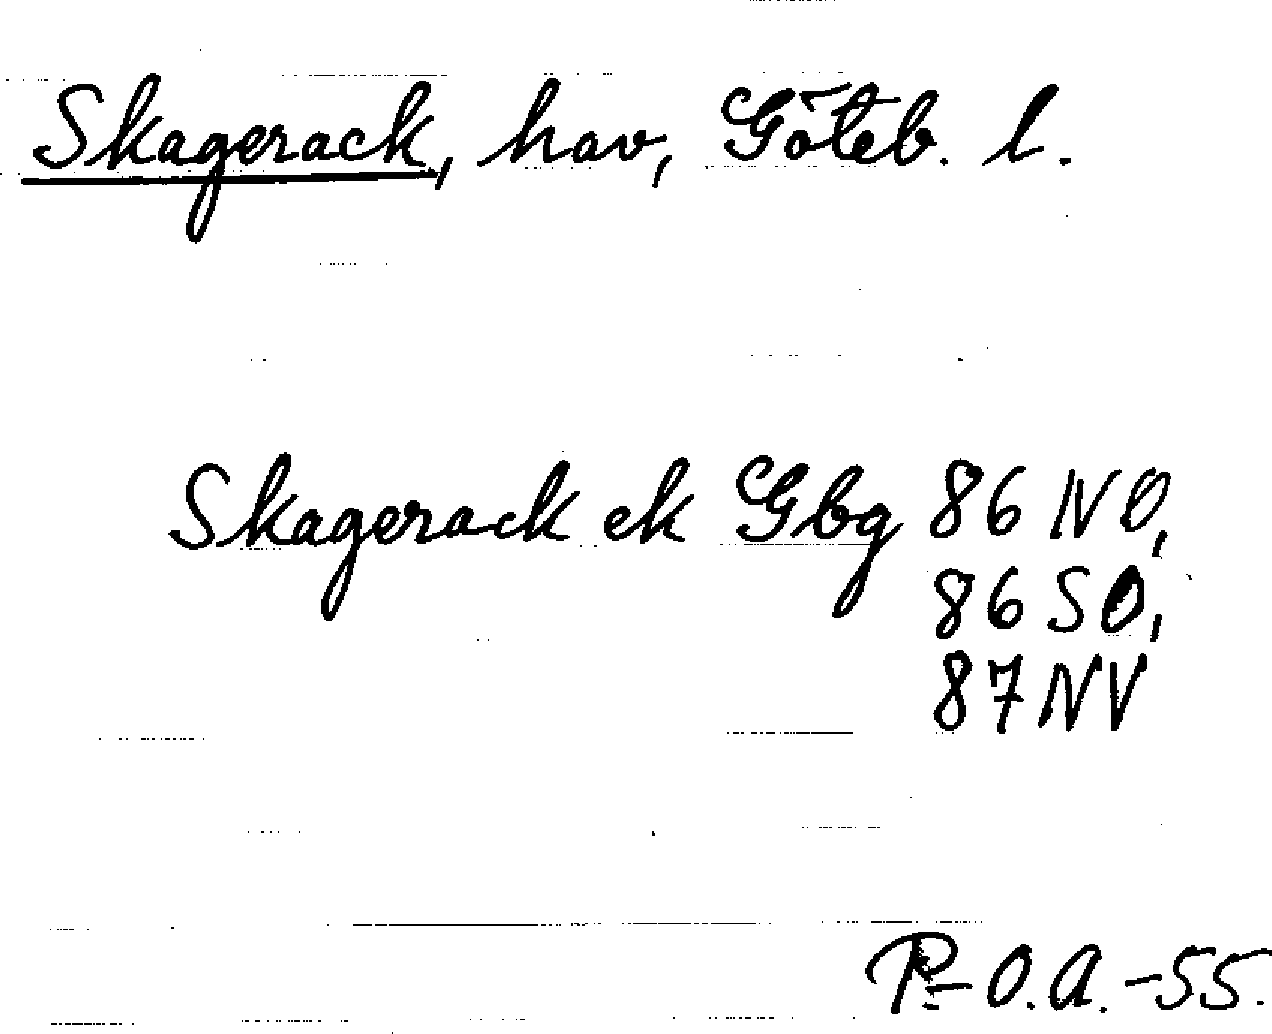 Skagerack, hav, Göteb. l.
Skagerack ek Gbg 86 NO,
86 SO,
87 NV
P-O.A.-55.